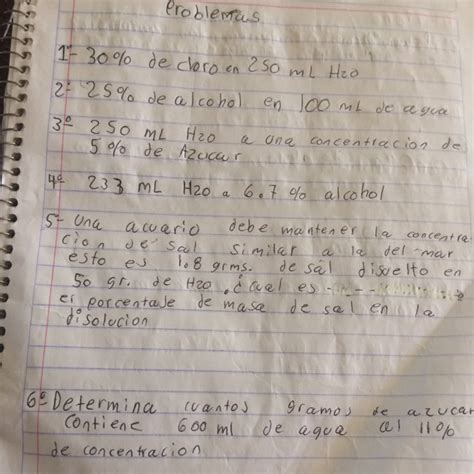 Problemas
1º- 30% de cloro en 250 mL H2O
2º 25% de alcohol en 100 mL de agua
3º 250 mL H2O a una concentracion de
5% de Azucar
4º 233 mL H2O a 6.7% alcohol
5- una acuario debe mantener la concentra
cion de sal similar a la del mar
esto es 1.8 grms. de sal disuelto en
50 gr. de H2O. ¿cual es
el porcentaje de masa de sal en la
disolucion
6º Determina cuantos gramos de azucar
contiene 600 ml de agua al 11%
de concentracion